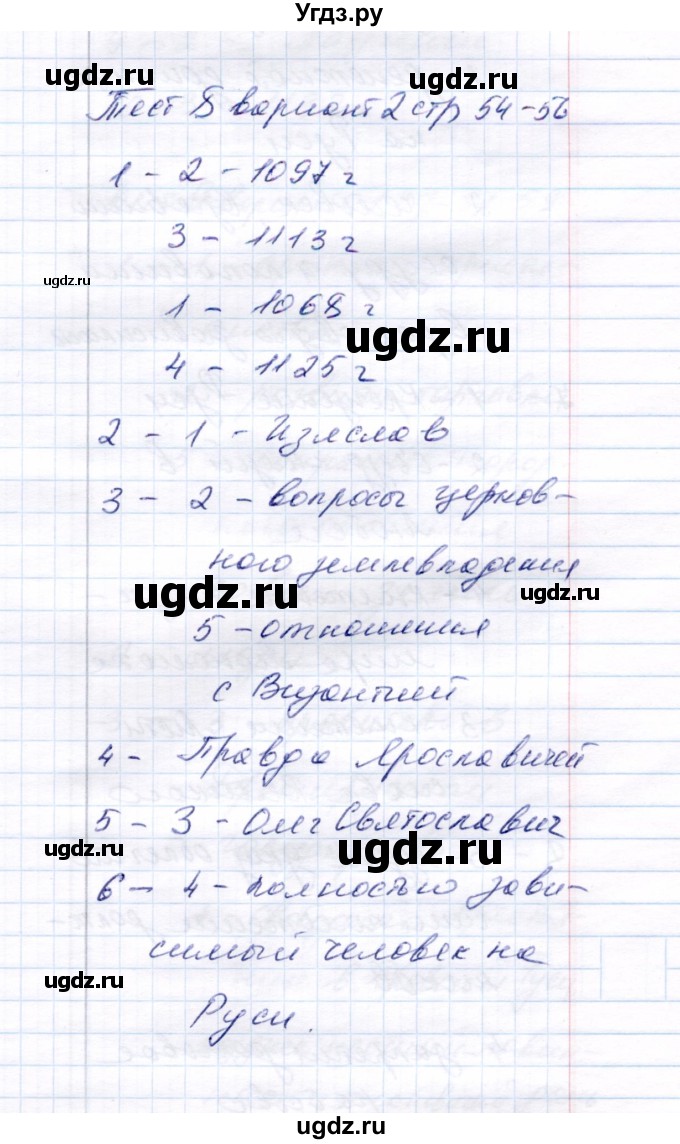 Угдз.ру
ugdz.ru ugdz.ru
Тест 8 вариант 2 стр 54-56
1 - 2 - 1097 г
3 - 1113 г
ugdz.ru
1 - 1068 г
ugdz.ru
4 - 1125 г
2 - 1 - Изяслав
3 - 2 - вопросы церков-
ного землевладения
ugdz.ru ugdz.ru
5 - отношения
с Византией
4 - Правда Ярославичей
5 - 3 - Олег Святославич
ugdz.ru ugdz.ru
6 - 4 - полностью зави-
симый человек на
ugdz.ru ugdz.ru
Руси.
ugdz.ru